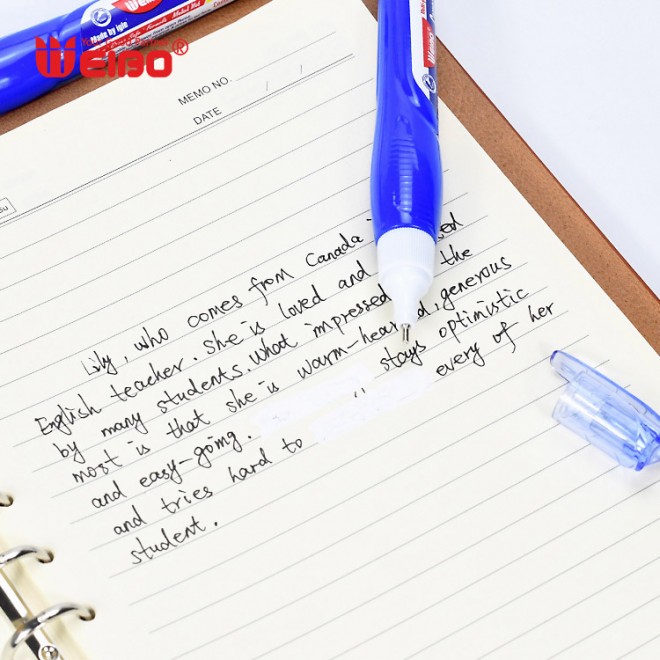 WEIBO®
Made by igle
MEMO NO.
DATE / /
Lily, who comes from Canada
English teacher. She is loved and
by many students. What impressed the
most is that she is warm-hearted, generous
and easy-going. stays optimistic
and tries hard to every of her
student.